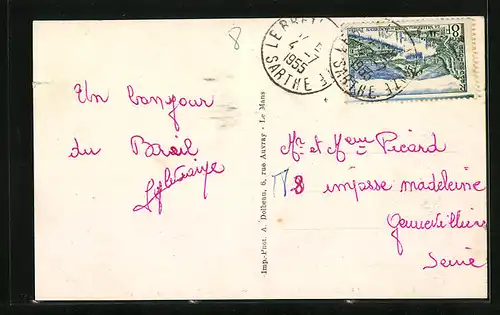 8
LE BREIL
4-7
1955
SARTHE
1955
SARTHE
Un bonjour
du Breil
Mr et Meme Picard
8 impasse madeleine
Gennevilliers
Seine
Imp.-Phot. A. Dolbeau, 6, rue Auvray - Le Mans